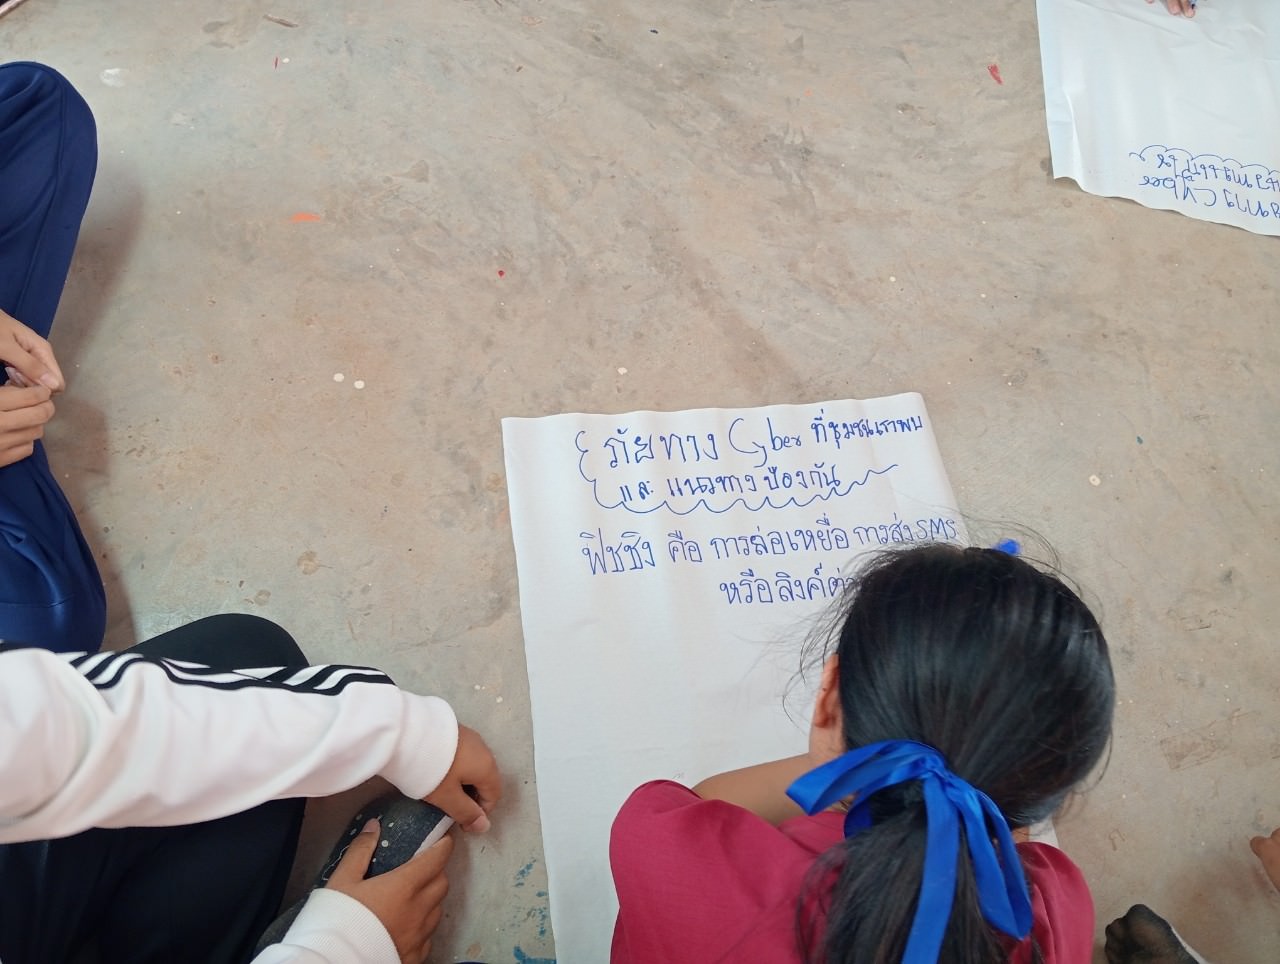 ภัยทาง Cyber ที่ชุมชนเราพบ
และ แนวทางป้องกัน
ฟิชชิง คือ การล่อเหยื่อ การส่งSMS
หรือลิงค์ต่าง
Cyber